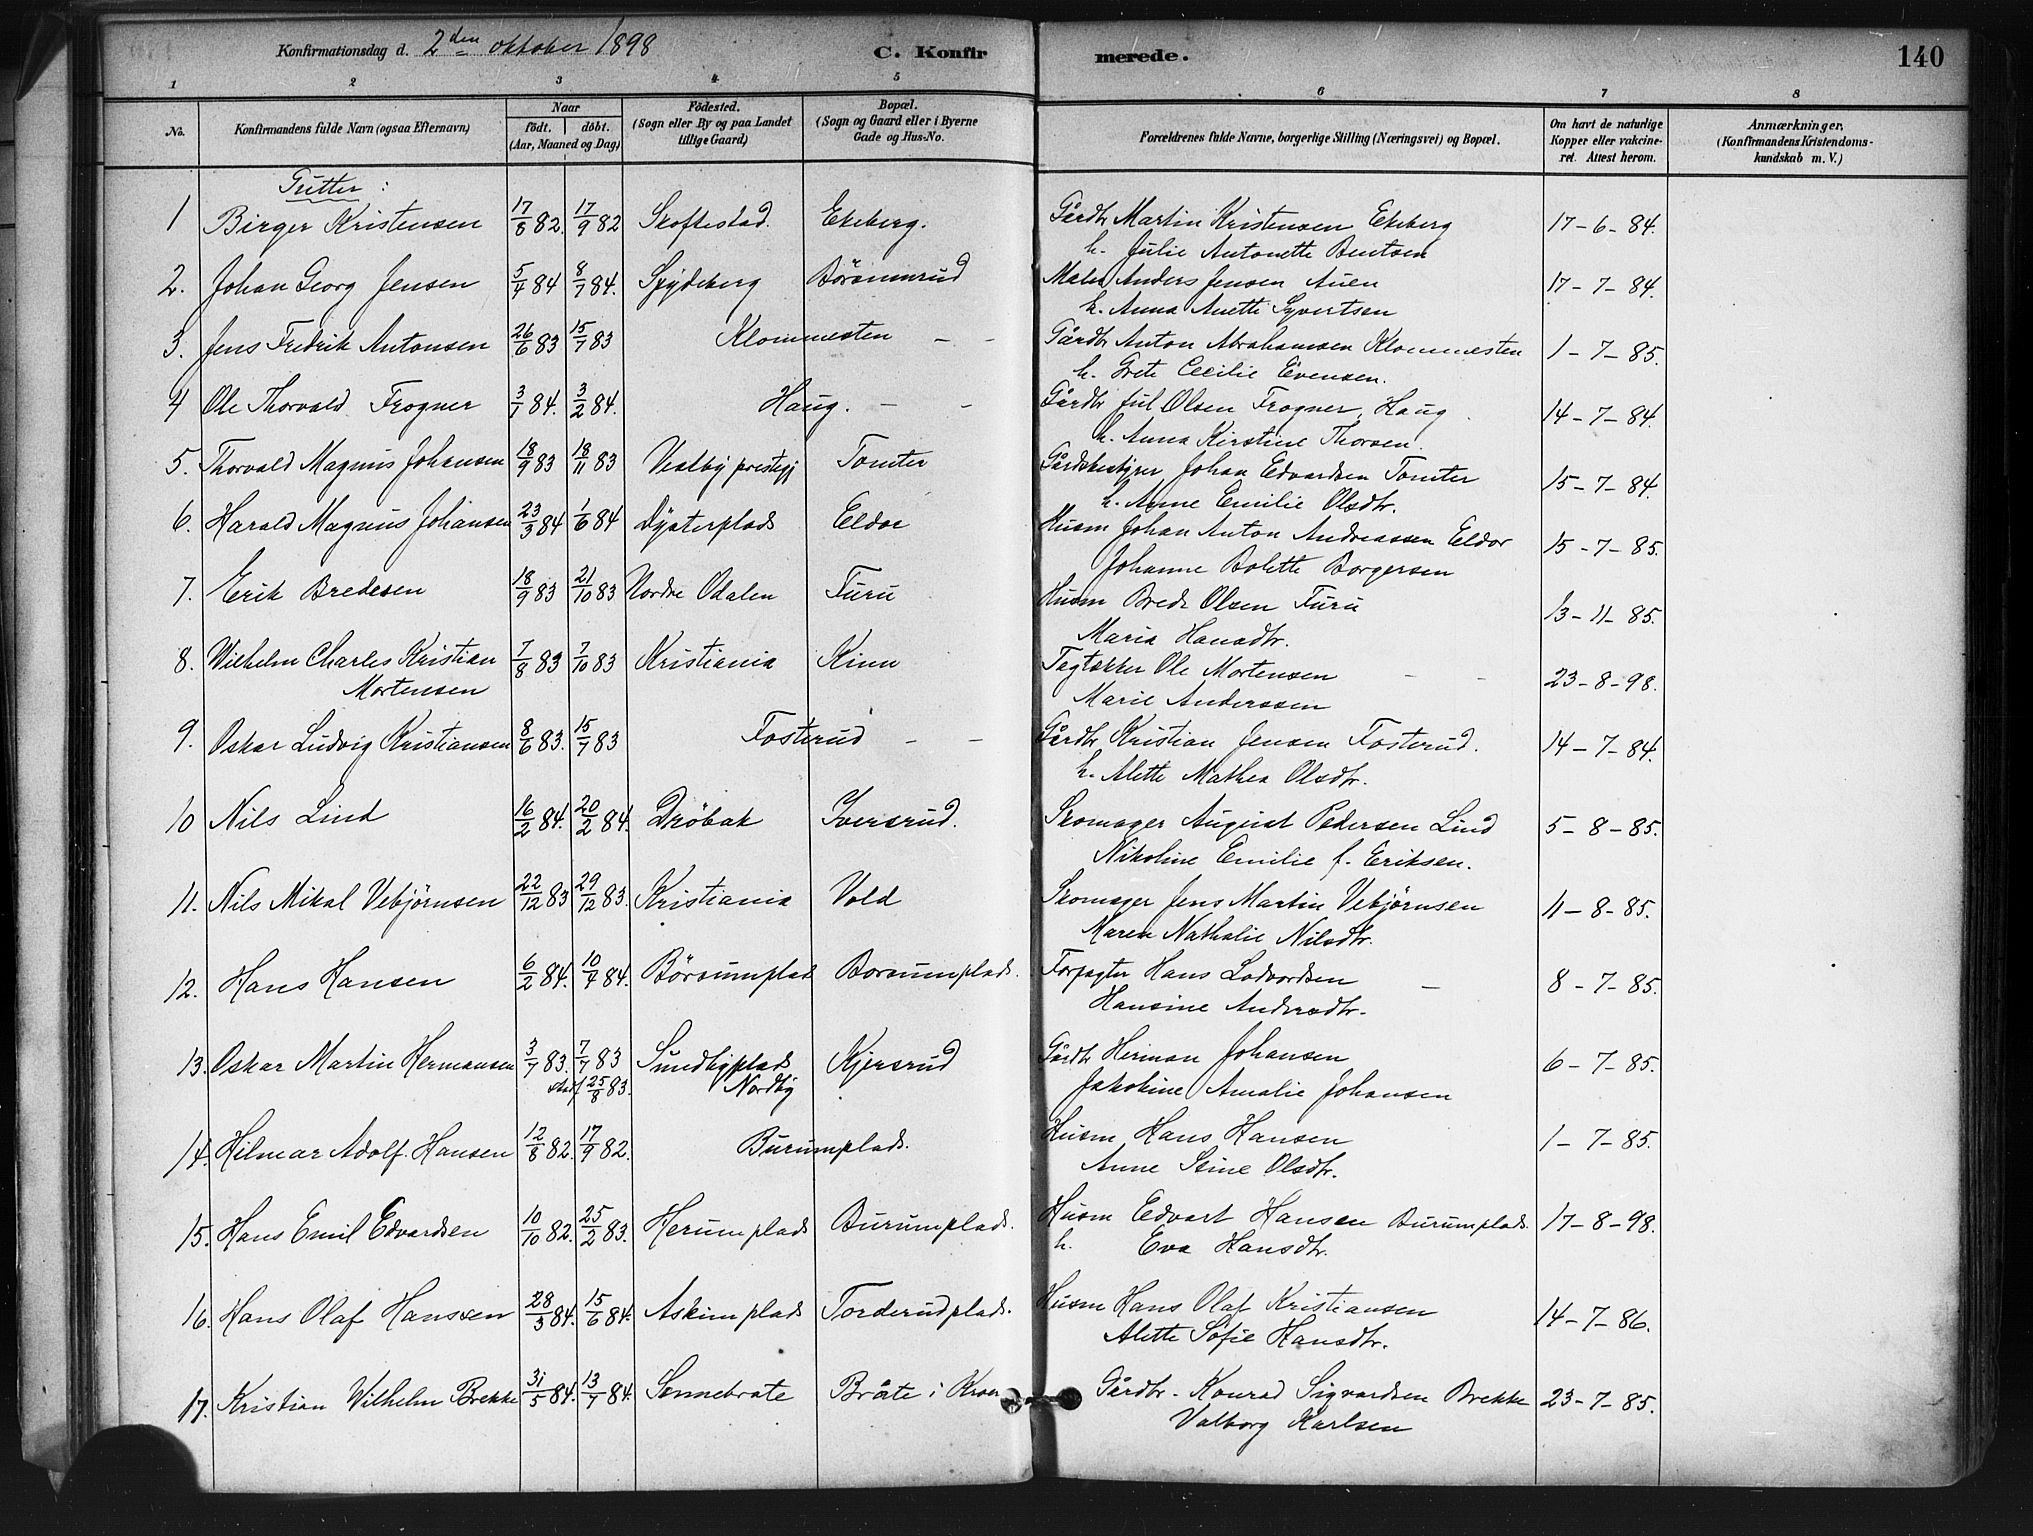 Konfirmationsdag d. 2den oktober 1898 C. Konfirmerede. 140
1 2 3 4 5 6 7 8
No. Konfirmandens fulde Navn (ogsaa Efternavn) Naar födt. döbt. (Aar, Maaned og Dag) Födested. (Sogn eller By og paa Landet tillige Gaard) Bopæl. (Sogn og Gaard eller i Byerne Gade og Hus-No. Forældrenes fulde Navne, borgerlige Stilling (Næringsvei) og Bopæl. Om havt de naturlige Kopper eller vakcineret. Attest herom. Anmærkninger. (Konfirmandens Kristendomskundskab m. V.)
Gutter:
1 Birger Kristensen 17/8 82. 17/9 82 Skoftestad. Ekeberg. Gårdbr Martin Kristensen Ekeberg 17-6-84.
h. Julie Antonette Bentsen
2. Johan Georg Jensen 5/4 84 8/7 84. Spydeberg Börsumrud Maler Anders Jensen Auen 17-7-84.
h. Anna Anette Syvertsen
3. Jens Fredrik Antonsen 26/6 83 15/7 83 Klommesten — - Gårdbr Anton Abrahamsen Klommesten 1-7-85.
h. Grete Cecilie Evensen.
4 Ole Thorvald Frogner 3/1 84. 3/2 84. Haug. — - Gårdbr Jul Olsen Frogner, Haug 14-7-84.
h. Anna Kirstine Thorsen.
5. Thorvald Magnus Johansen 18/9 83 18/11 83 Vestby prestegj Tomter Gårdsbestyrer Johan Edvardsen Tomter 15-7-84.
h. Anne Emilie Olsdtr.
6. Harald Magnus Johansen 23/3 84 1/6 84 Dysterplads Eldor Husm Johan Anton Andreassen Eldor 15-7-85.
Johanne Bolette Borgersen
7. Erik Bredesen 18/9 83 21/10 83 Nordre Odalen Furu Husm Brede Olsen Furu 13-11-85.
Maria Hansdtr.
8. Wilhelm Charles Kristian 7/8 83 7/10 83 Kristiania Kinn Tagtækker Ole Mortensen — - 23-8-98.
Mortensen Marie Anderssen
9. Oskar Ludvig Kristiansen 8/6 83. 15/7 83 Fosterud — — Gårdbr Kristian Jensen Fosterud. 14-7-84.
h. Alette Mathea Olsdtr.
10 Nils Lind 16/2 84. 20/2 84. Dröbak Iversrud. Skomager August Pedersen Lind 5-8-85.
Nikoline Emilie f. Eriksen.
11. Nils Mikal Vebjörnsen 22/12 83 29/12 83. Kristiania Vold Skomager Jens Martin Vebjörnsen 11-8-85.
Maren Nathalie Nilsdtr.
12. Hans Hansen 6/2 84. 10/4 84. Börsumplad Borsumplads. Forpagter Hans Lodvordsen — 8-7-85.
Hansine Andersdtr.
13. Oskar Martin Hermansen 3/7 83. 7/7 83 Sundbyplads Kjersrud Gårdbr Herman Johansen 6-7-85.
stadf 25/8 83. Nordby Jakobine Amalie Johansen
14. Hilmar Adolf. Hansen 12/8 82. 17/9 82. Burumplads. Husm Hans Hansen 1-7-85.
Anne Stine Olsdtr.
15. Hans Emil Edvardsen 10/10 82. 25/2 83. Herumplads Burumplads. Husm Edvart Hansen Burumplads. 17-8-98.
h. Eva Hansdtr.
16. Hans Olaf Hanssen 28/3 84. 15/6 84. Askimplads Torderudplads. Husm Hans Olaf Kristiansen 14-7-86.
Alette Sofie Hansdtr.
17. Kristian Wilhelm Brekke 31/5 84. 13/7 84. Sønnebråte Bråte i Kroer Gårdbr. Konrad Sigvardsen Brekke 23-7-85.
Valborg Karlsen